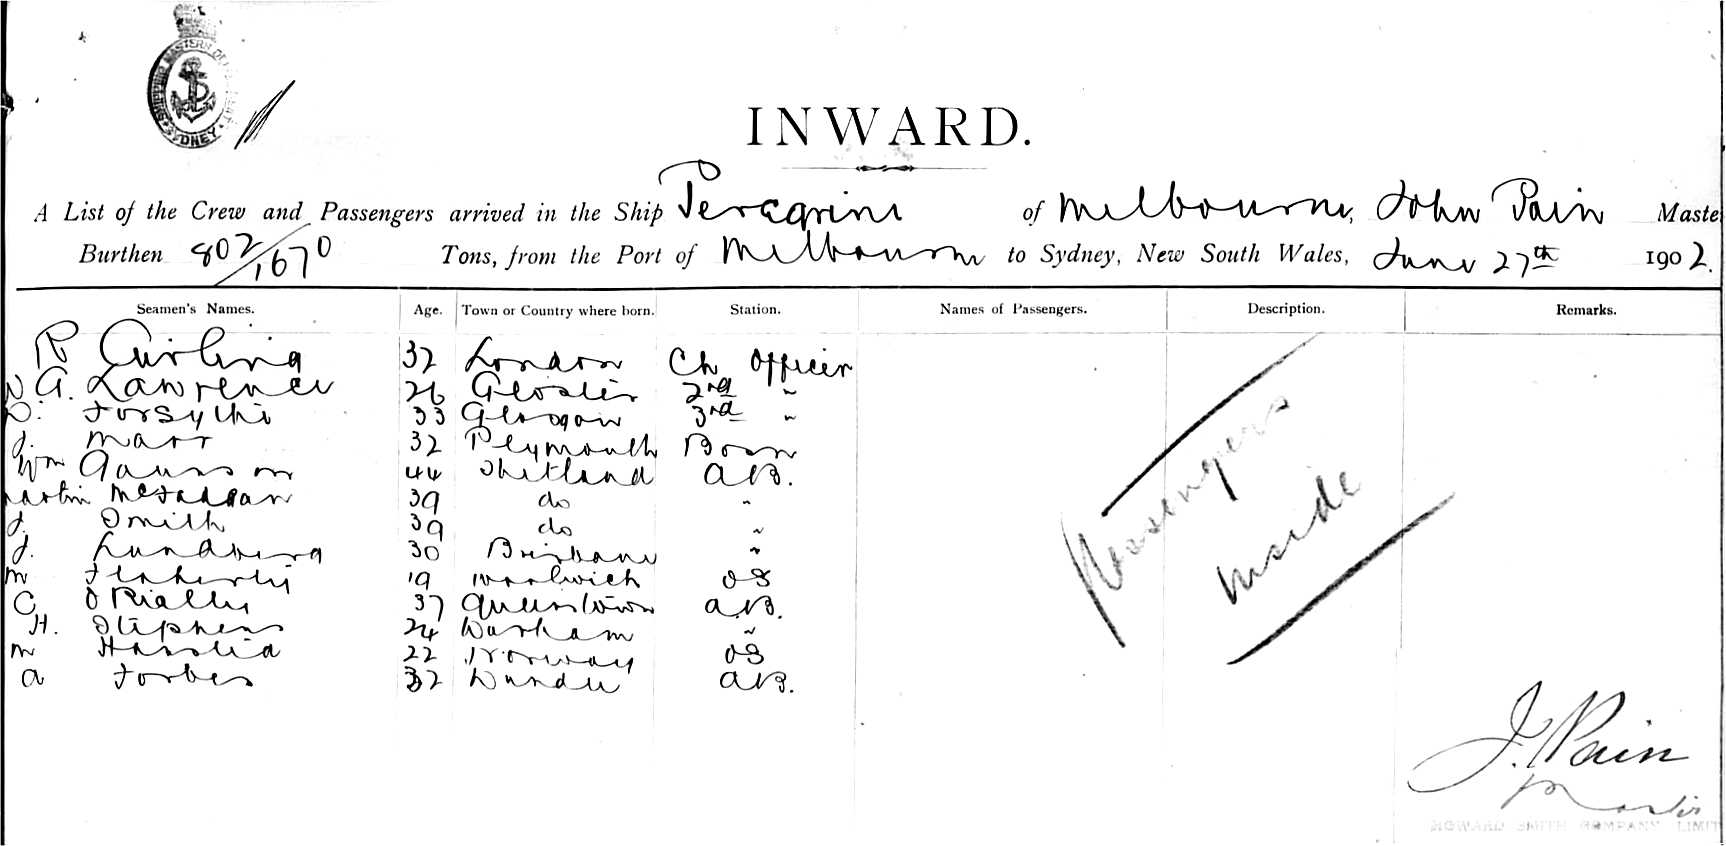 SHIPPING MASTERS DEPARTMENT SYDNEY
INWARD.
A List of the Crew and Passengers arrived in the Ship Peregrine of Melbourne, John Pain Maste
Burthen 802/1670 Tons, from the Port of Melbourne to Sydney, New South Wales, June 27th 1902.
Seamen's Names. Age. Town or Country where born. Station. Names of Passengers. Description. Remarks.
R Curling 32 London Ch Officer
W G. Lawrence 26 Gloster 2nd "
D. Forsythe 33 Glasgow 3rd "
J. Marr 32 Plymouth Bosn
Wm Gaunson 44 Shetland A.B.
Martin McFaddan 39 do "
J. Smith 39 do "
J. Lundberg 30 Brisbane "
M Flaherty 19 Woolwich OS
C O'Rielly 37 Queenstown A.B.
H. Stephens 24 Warham "
M 22 Norway OS
A Forbes 32 Dundee A.B.
Passengers
inside
J. Pain
Master
HOWARD SMITH COMPANY LIMIT